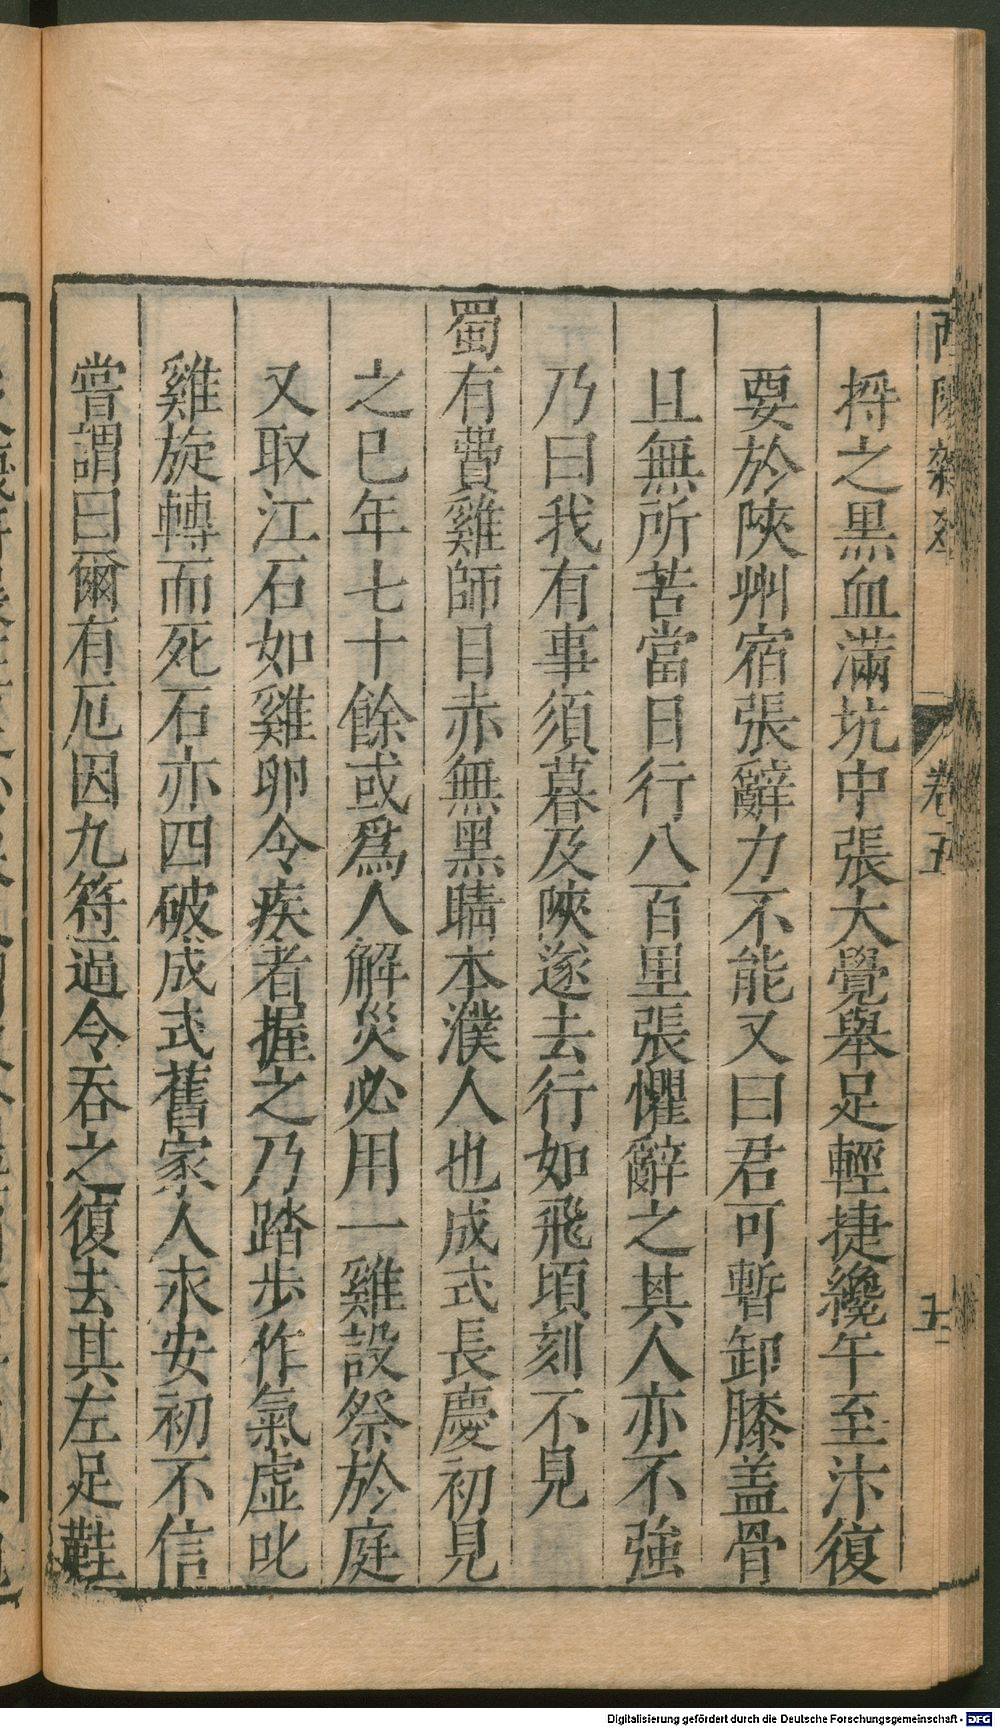 酉陽雜俎
卷五
五
捋之黒血滿坑中張大覺舉足輕捷纔午至汴復
要於陜州宿張辭力不能又曰君可暫卸膝盖骨
且無所苦當日行八百里張懼辭之其人亦不強
乃曰我有事須暮及陜遂去行如飛頃刻不見
蜀有費雞師目赤無黑睛本濮人也成式長慶初見
之已年七十餘或爲人解災必用一雞設祭於庭
又取江石如雞卵令疾者握之乃踏步作氣虛叱
雞旋轉而死石亦四破成式舊家人永安初不信
嘗謂曰爾有厄因九符逼令吞之復去其左足鞋
Digitalisierung gefördert durch die Deutsche Forschungsgemeinschaft - DFG